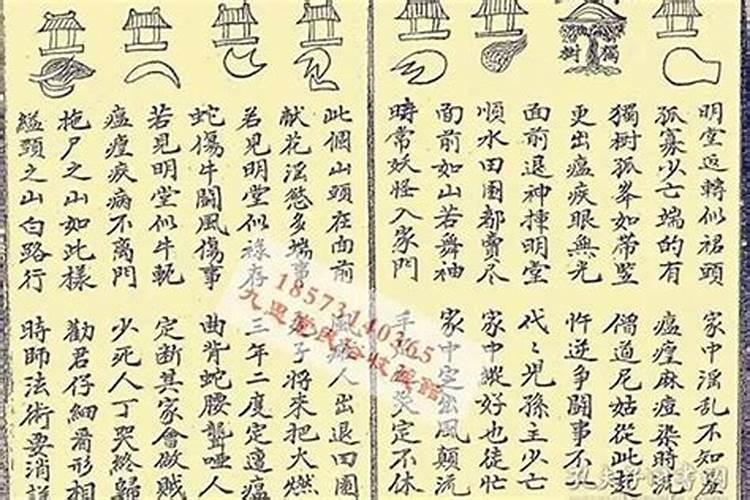 獨樹
明堂返轉似裙頭 家中淫乱不知
孤寡少亡端的有 瘟瘴麻痘染時流
獨樹孤峯如帶竪 僧道尼姑從此
更出瘟疾眼無光 忤逆爭闘事不
面前退神揀明堂 代々児孫主少亡
順水田園都賣尽 家中縱好也徒忙
面前如山若舞袖 家中定出風顛流
時常妖怪入家門 手 哭定不休
此個山頭在面前 人出退田園
献花淫慾多端事 子將來把火燃
若見明堂似祿存 三年二度定遭瘟
蛇傷牛闘風傷事 曲背蛇腰聾啞人
若見明堂似牛軛 定断其家會做賊
瘟瘴疾病不離門 少死人丁哭終歸
拖尸之山如此樣 勸君仔細看形相
縊頭之山白路行 時師法術要消詳
18573140365